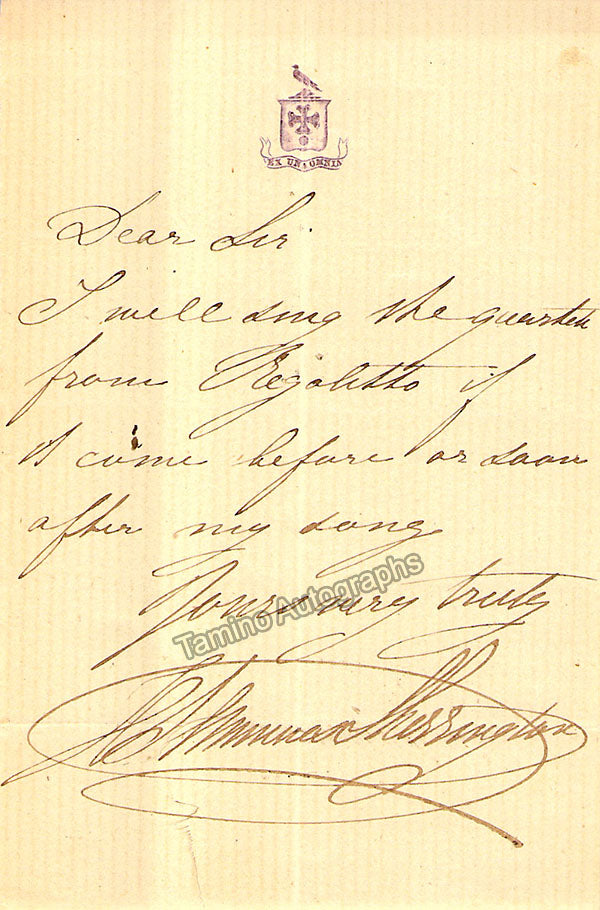 EX UNO OMNIA
Dear Sir
I will sing the quartett
from Regolitto if
it come before or soon
after my song
Yours very truly
Tamino Autographs
Lemmens Sherrington